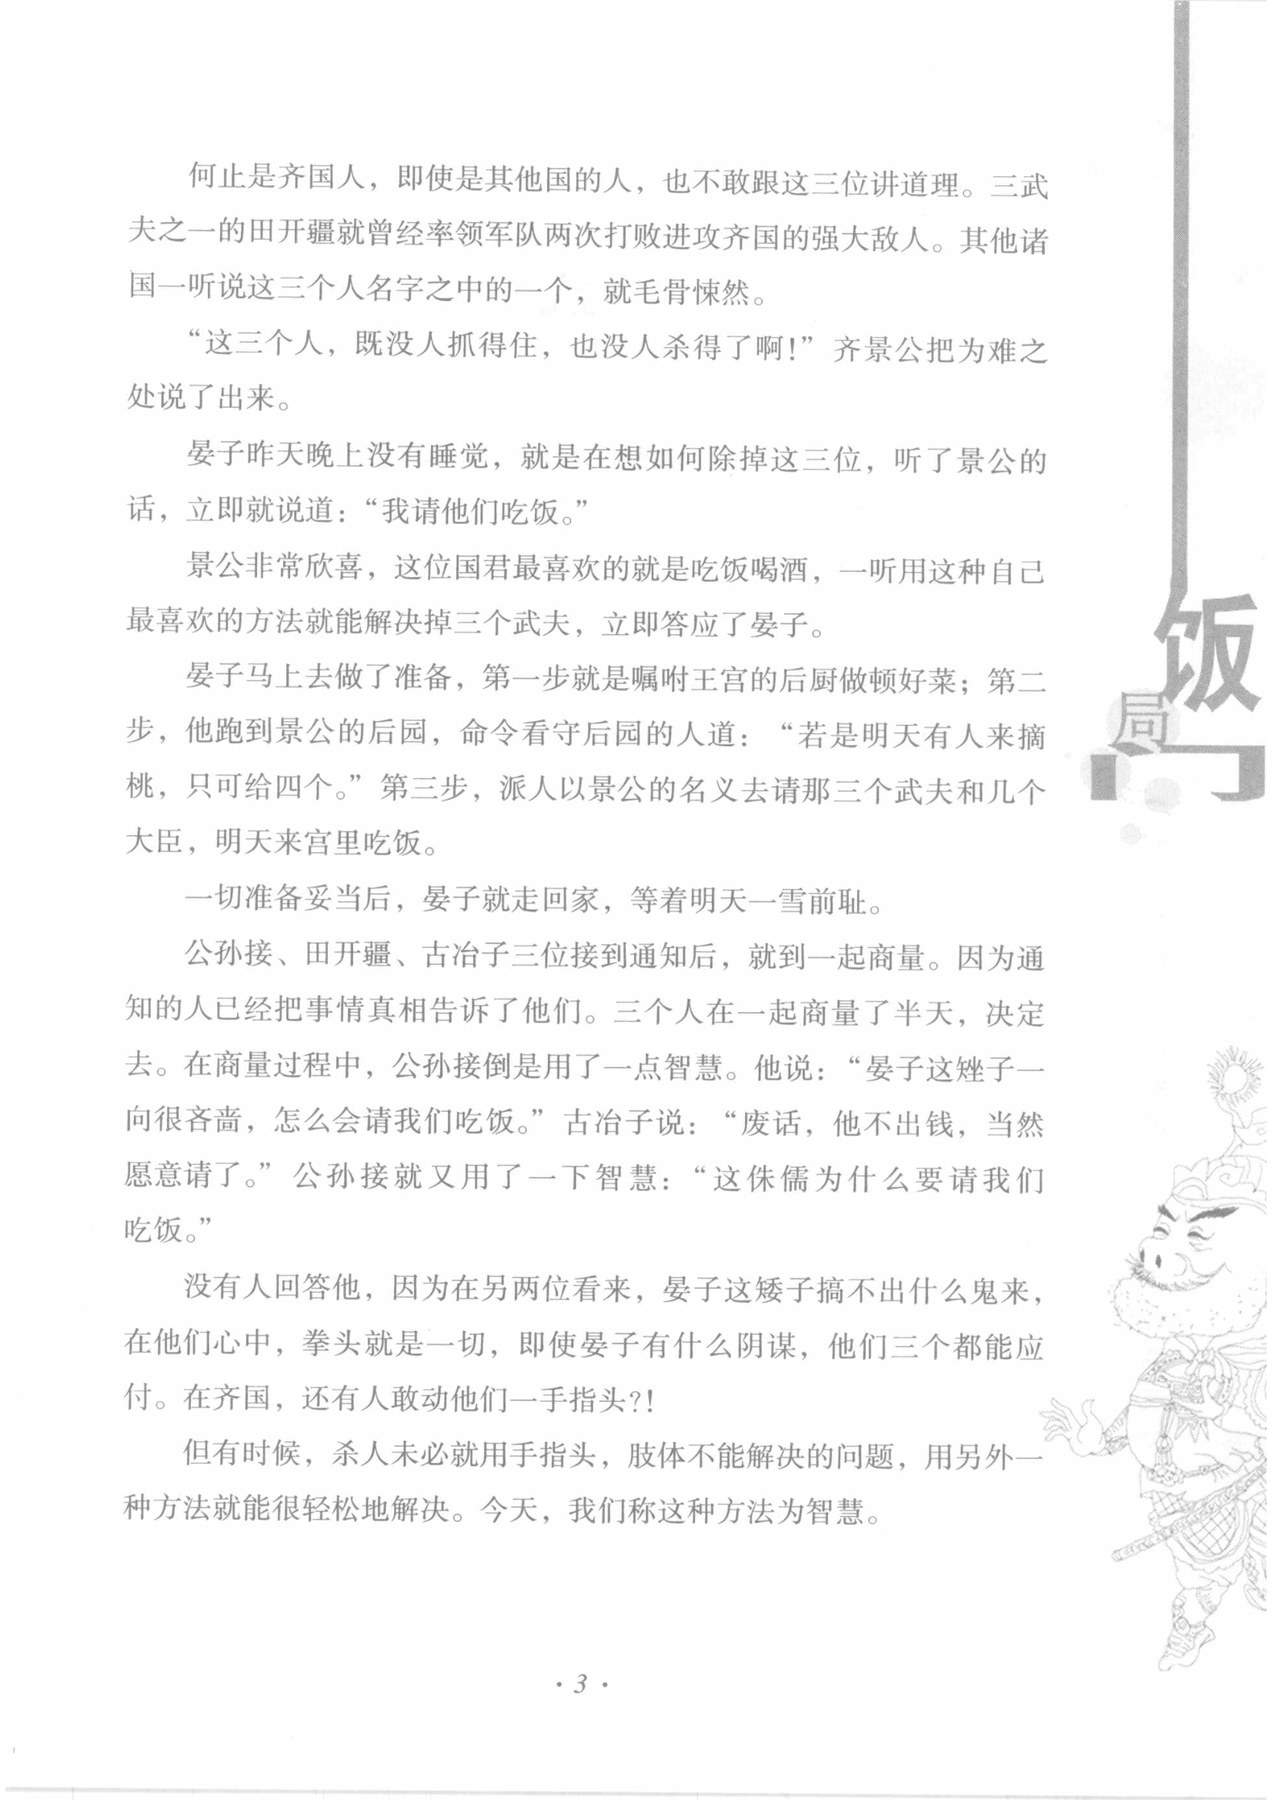 何止是齐国人，即使是其他国的人，也不敢跟这三位讲道理。三武
夫之一的田开疆就曾经率领军队两次打败进攻齐国的强大敌人。其他诸
国一听说这三个人名字之中的一个，就毛骨悚然。
“这三个人，既没人抓得住，也没人杀得了啊！”齐景公把为难之
处说了出来。
晏子昨天晚上没有睡觉，就是在想如何除掉这三位，听了景公的
话，立即就说道：“我请他们吃饭。”
景公非常欣喜，这位国君最喜欢的就是吃饭喝酒，一听用这种自己
最喜欢的方法就能解决掉三个武夫，立即答应了晏子。
晏子马上去做了准备，第一步就是嘱咐王宫的后厨做顿好菜；第二
步，他跑到景公的后园，命令看守后园的人道：“若是明天有人来摘
桃，只可给四个。”第三步，派人以景公的名义去请那三个武夫和几个
大臣，明天来宫里吃饭。
一切准备妥当后，晏子就走回家，等着明天一雪前耻。
公孙接、田开疆、古冶子三位接到通知后，就到一起商量。因为通
知的人已经把事情真相告诉了他们。三个人在一起商量了半天，决定
去。在商量过程中，公孙接倒是用了一点智慧。他说：“晏子这矬子一
向很吝啬，怎么会请我们吃饭。”古冶子说：“废话，他不出钱，当然
愿意请了。”公孙接就又用了一下智慧：“这侏儒为什么要请我们
吃饭。”
没有人回答他，因为在另两位看来，晏子这矮子搞不出什么鬼来，
在他们心中，拳头就是一切，即使晏子有什么阴谋，他们三个都能应
付。在齐国，还有人敢动他们一手指头？！
但有时候，杀人未必就用手指头，肢体不能解决的问题，用另外一
种方法就能很轻松地解决。今天，我们称这种方法为智慧。
饭
局
· 3 ·